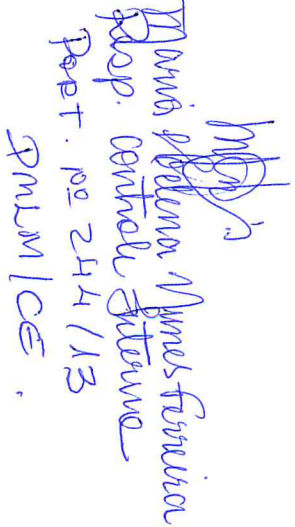 Maria Helena Nunes Ferreira
Resp. Controle Interno
Port. nº 244/13
PMLM/CE.